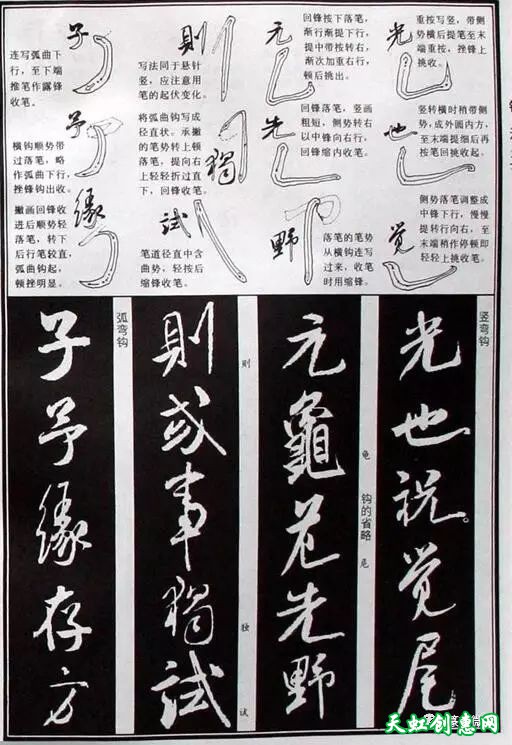 光
重按写竖，带侧
势横后提笔至末
端重按，挫锋上
挑收。
也
竖转横时稍带侧
势，成外圆内方，
至末端提细后再
按笔回挑收起。
觉
侧势落笔调整成
中锋下行，慢慢
提转行向右，至
末端稍作停顿即
轻轻上挑收笔。
元
回锋按下落笔，
渐行渐提下行，
提中带按转右，
渐次加重右行，
顿后挑出。
先
回锋落笔，竖画
粗短，侧势转右
以中锋向右行，
回锋缩内收笔。
野
落笔的笔势
从横钩连写
过来，收笔
时用缩锋。
則
写法同于悬针
竖，应注意用
笔的起伏变化。
獨
将弧曲钩写成
径直状。承撇
的笔势转上顿
落笔，提向右
上轻轻折过直
下，回锋收笔。
試
笔道径直中含
曲势，轻按后
缩锋收笔。
子
连写弧曲下
行，至下端
推笔作露锋
收笔。
予
横钩顺势带
过落笔，略
作弧曲下行，
挫锋钩出收。
緣
撇画回锋收
进后顺势轻
落笔，转下
后行笔较直，
弧曲钩起，
顿挫明显。
竖弯钩
光也説觉尾
龟
钩的省略
危
元龜危先野
则
独
试
則或事獨試
弧弯钩
子予緣存方
天虹创意网